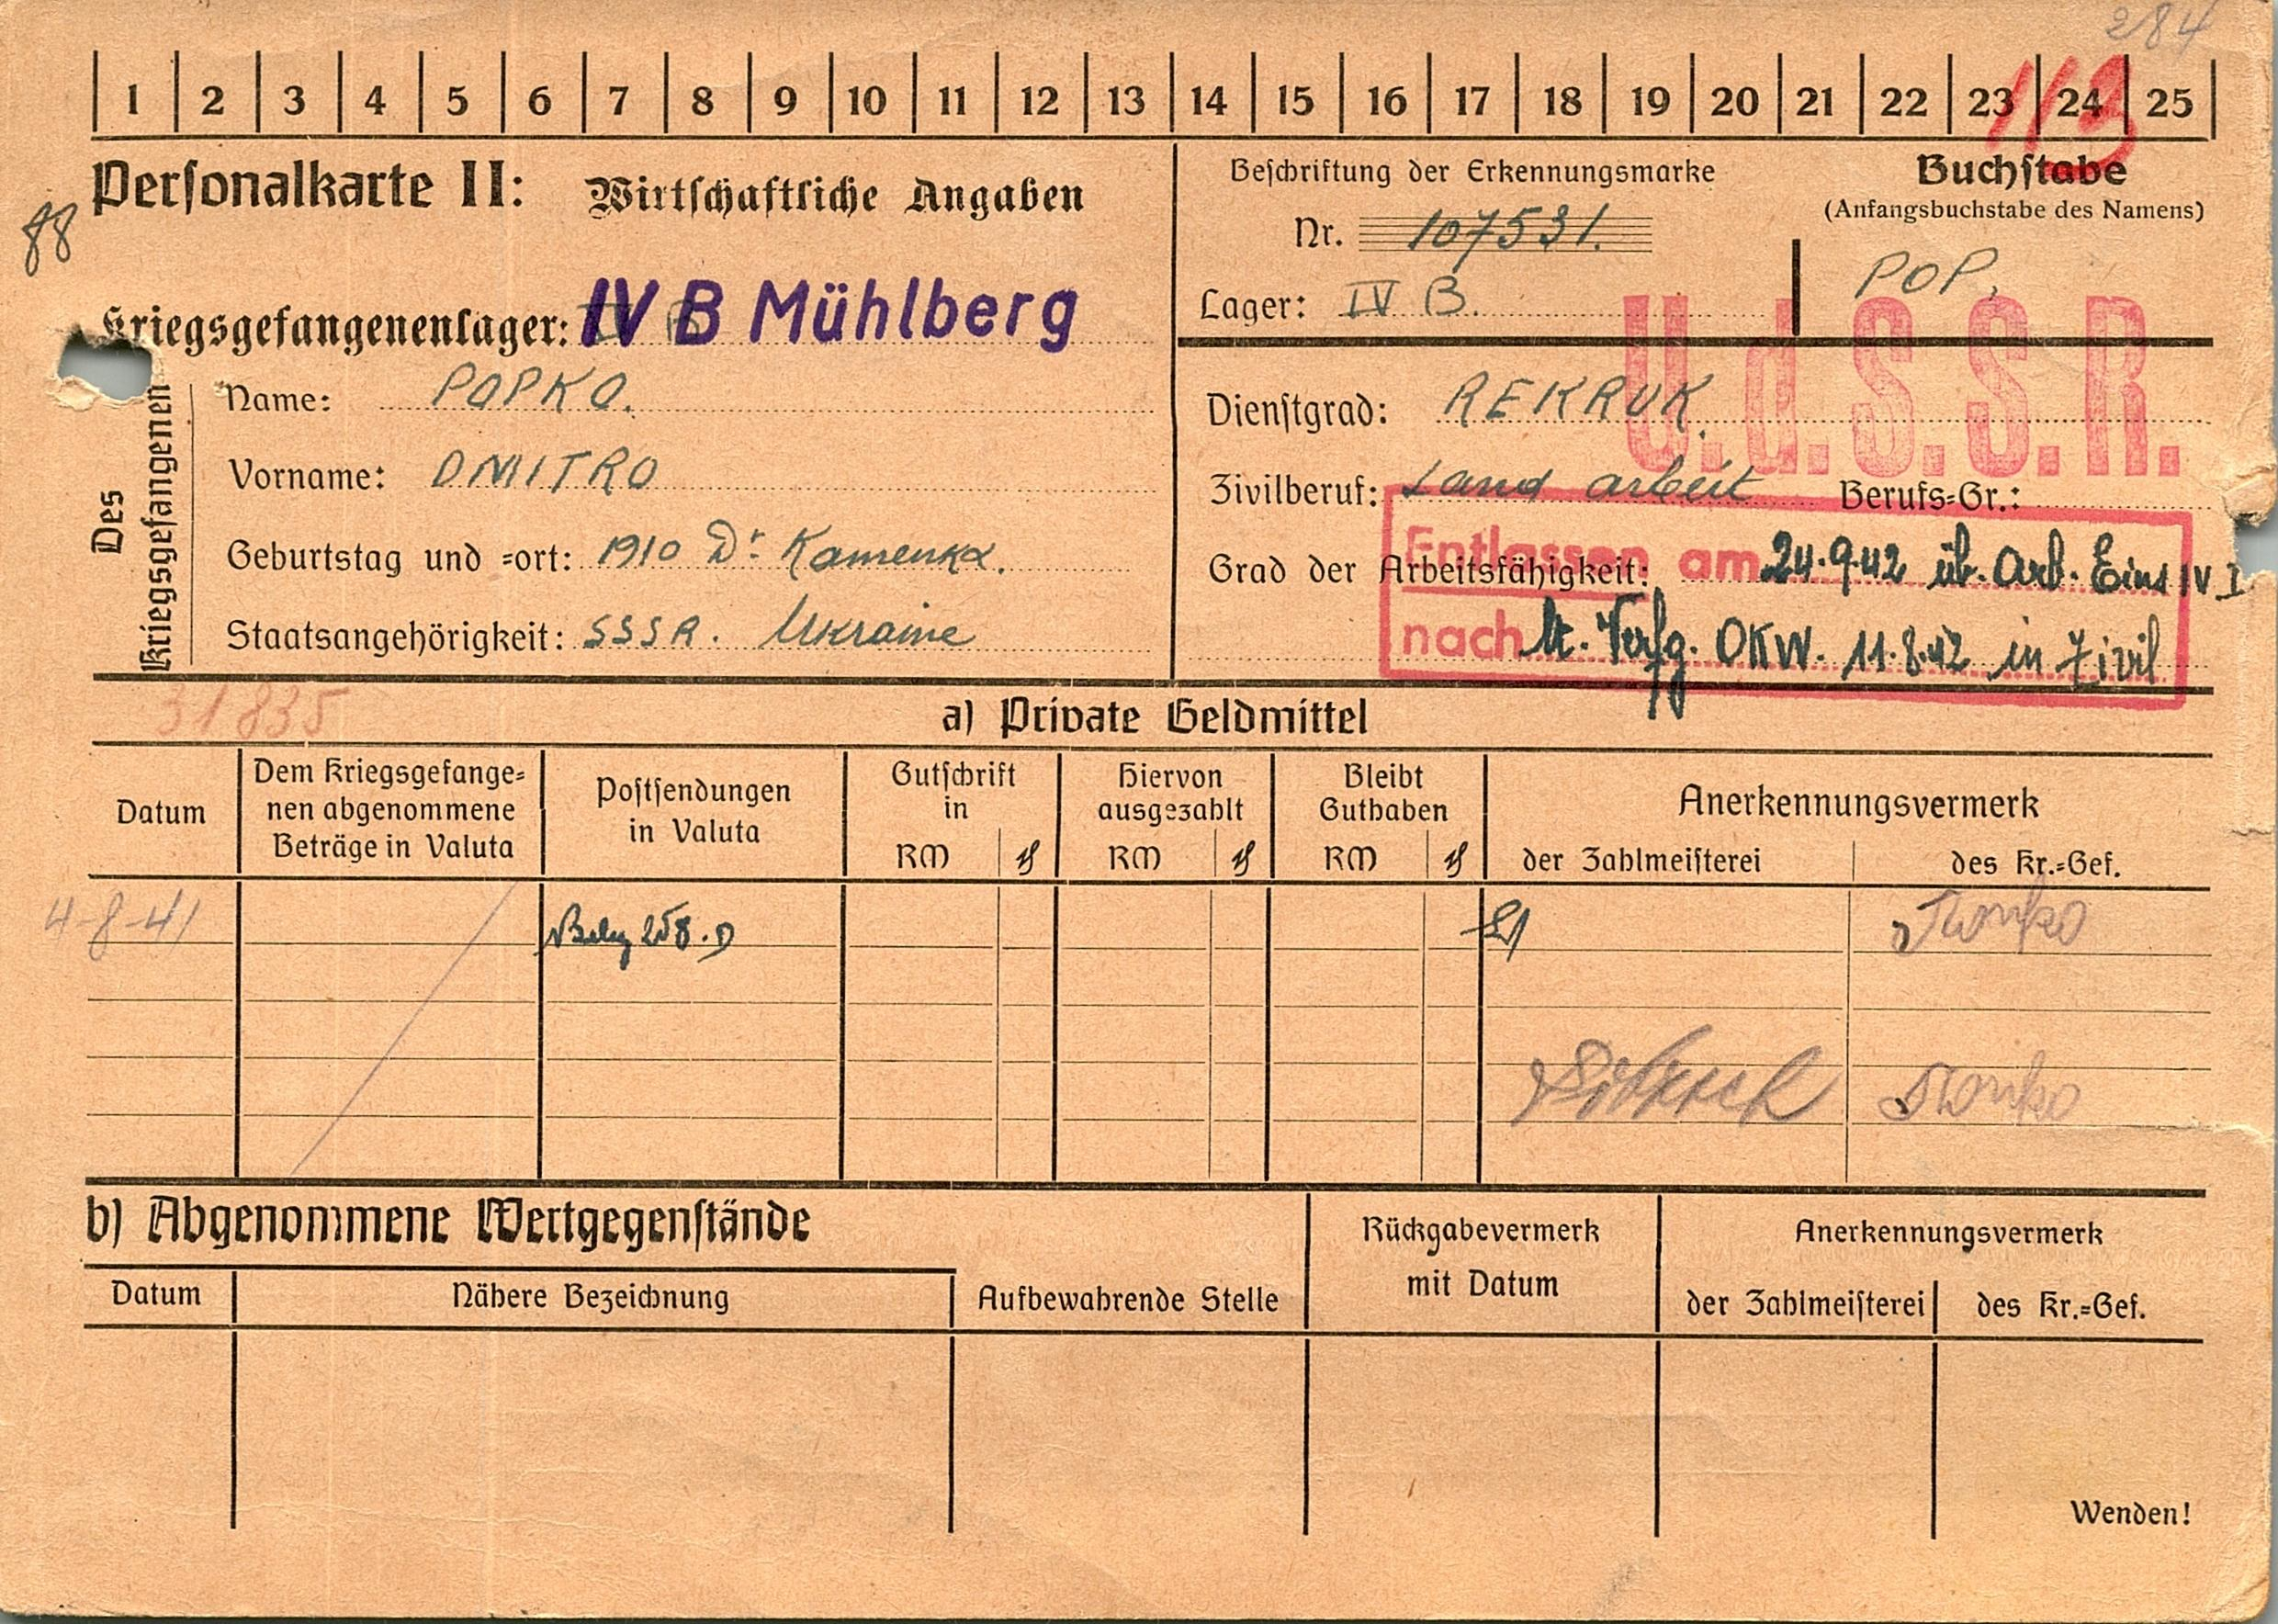 284
1 2 3 4 5 6 7 8 9 10 11 12 13 14 15 16 17 18 19 20 21 22 23 24 25
113
Personalkarte II: Wirtschaftliche Angaben
88
Kriegsgefangenenlager: IV B Mühlberg
Beschriftung der Erkennungsmarke
Nr. 107531.
Lager: IV B.
Buchstabe
(Anfangsbuchstabe des Namens)
POP.
U.d.S.S.R.
Des Kriegsgefangenen
Name: POPKO.
Vorname: DMITRO
Geburtstag und =ort: 1910 Dr Kamenka.
Staatsangehörigkeit: SSSR. Ukraine
Dienstgrad: REKRUK.
Zivilberuf: Land arbeit Berufs=Gr.:
Grad der Arbeitsfähigkeit:
Entlassen am 24.9.42 üb. Arb. Eins IV I
nach lt. Verfg. OKW. 11.8.42 in Zivil
31835
a) Private Geldmittel
Datum
Dem Kriegsgefange=
nen abgenommene
Beträge in Valuta
Postsendungen
in Valuta
Gutschrift
in
RM ₰
Hiervon
ausgezahlt
RM ₰
Bleibt
Guthaben
RM ₰
Anerkennungsvermerk
der Zahlmeisterei des Kr.=Gef.
4-8-41 258.
b) Abgenommene Wertgegenstände
Datum Nähere Bezeichnung Aufbewahrende Stelle
Rückgabevermerk
mit Datum
Anerkennungsvermerk
der Zahlmeisterei des Kr.=Gef.
Wenden!